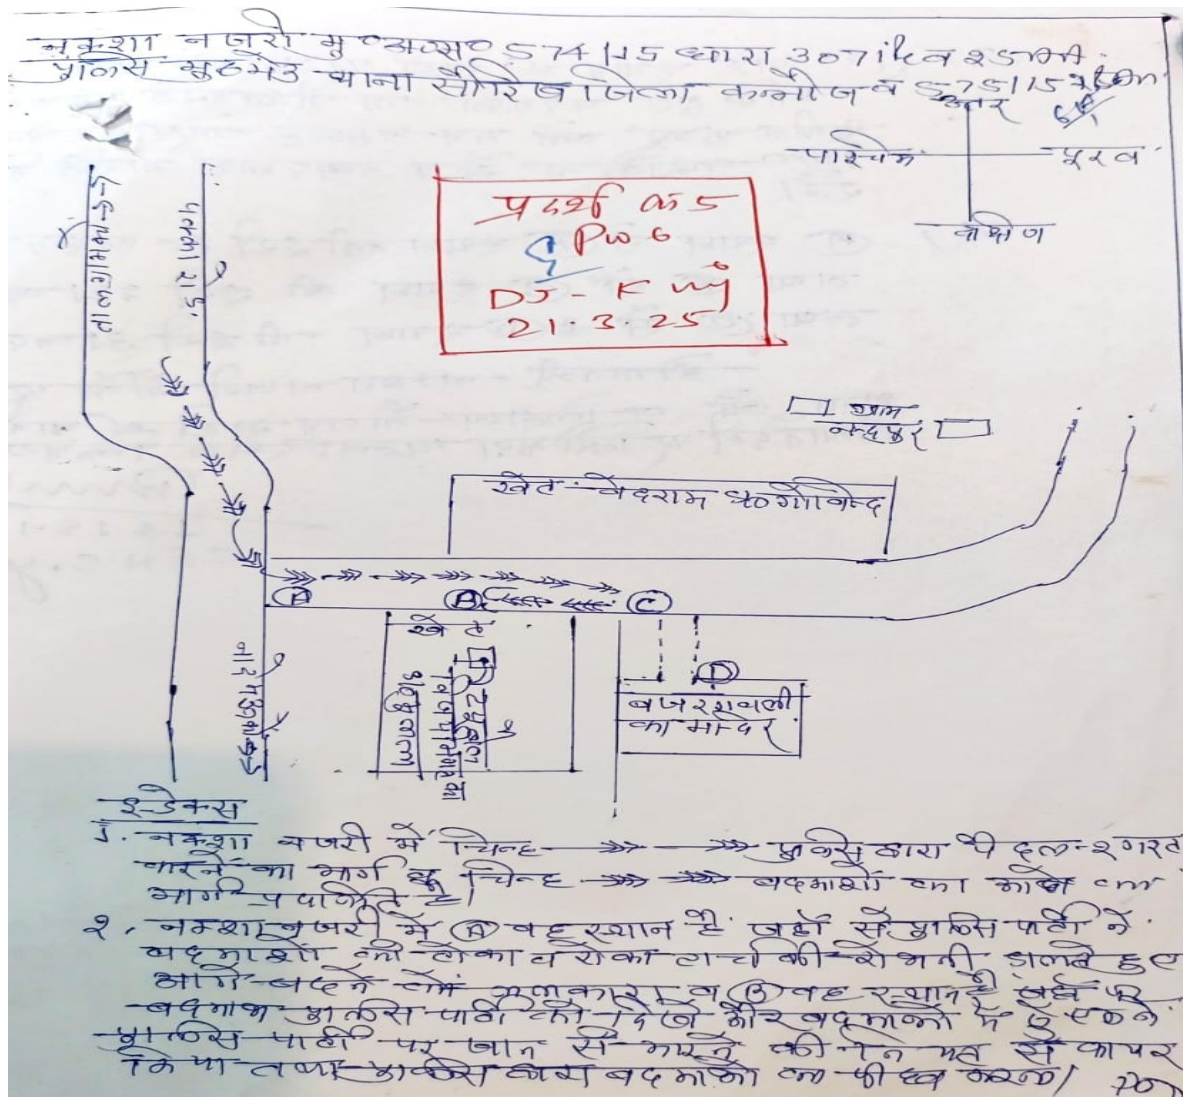 नक्शा नजरी मु०अ०स० 574/15 धारा 307 व
पुलिस मुठभेड थाना सौरिख जिला कन्नौज व 575/15
उत्तर
पश्चिम
पूरब
दक्षिण
प्रदर्श क 5
PW 6
DJ-K
21.3.25
पक्का रोड
ग्राम
नन्दपुर
खेत वेदराम पु० गोविन्द
A
B
C
खेत
D
बजरंगवली
का मन्दिर
इन्डेक्स
1. नक्शा नजरी में चिन्ह पुलिस द्वारा पैदल गस्त
करने का मार्ग व चिन्ह बदमाशों का आने का
मार्ग प्रदर्शित है।
२. नक्शा नजरी में A वह स्थान है जहाँ से पुलिस पार्टी ने
बदमाशों को टोका व रोका टार्च की रोशनी डालते हुए
आगे बढने ललकारा व B वह स्थान है जहाँ पर
बदमाश पुलिस पार्टी को दिखे और बदमाशों में से एक ने
पुलिस पार्टी पर जान से मारने की नियत से फायर
किया तथा पुलिस द्वारा बदमाशों का पीछा करना।